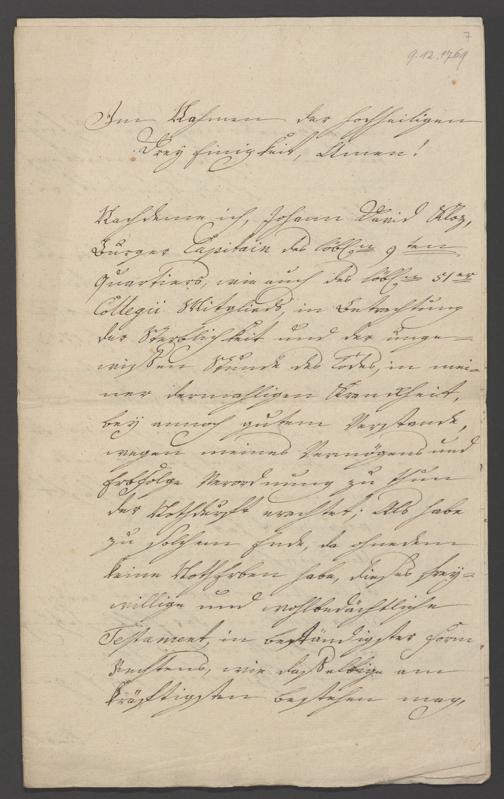 7
9.12.1769
Im Nahmen der hochheiligen
Dreyfaltigkeit, Amen!
Nachdeme ich, Johann David Kloz,
Burger Capitain des löbl.en 9ten
Quartiers, wie auch des löbl.en 51er
Collegii Mitglied, in Betrachtung
der Sterblichkeit und der unge-
wissen Stunde des Todes, in mei-
ner dermahligen Kranckheit,
bey annoch gutem Verstande,
wegen meines Vermögens und
Erbfolge Verordnung zu thun
der Nothdurft erachtet; Als habe
zu solchem Ende, da ohnedem
keine NothErben habe, dieses frey-
willige und wohlbedächtliche
Testament, in beständigster Form
Rechtens, wie dasselbige am
kräftigsten bestehen mag,